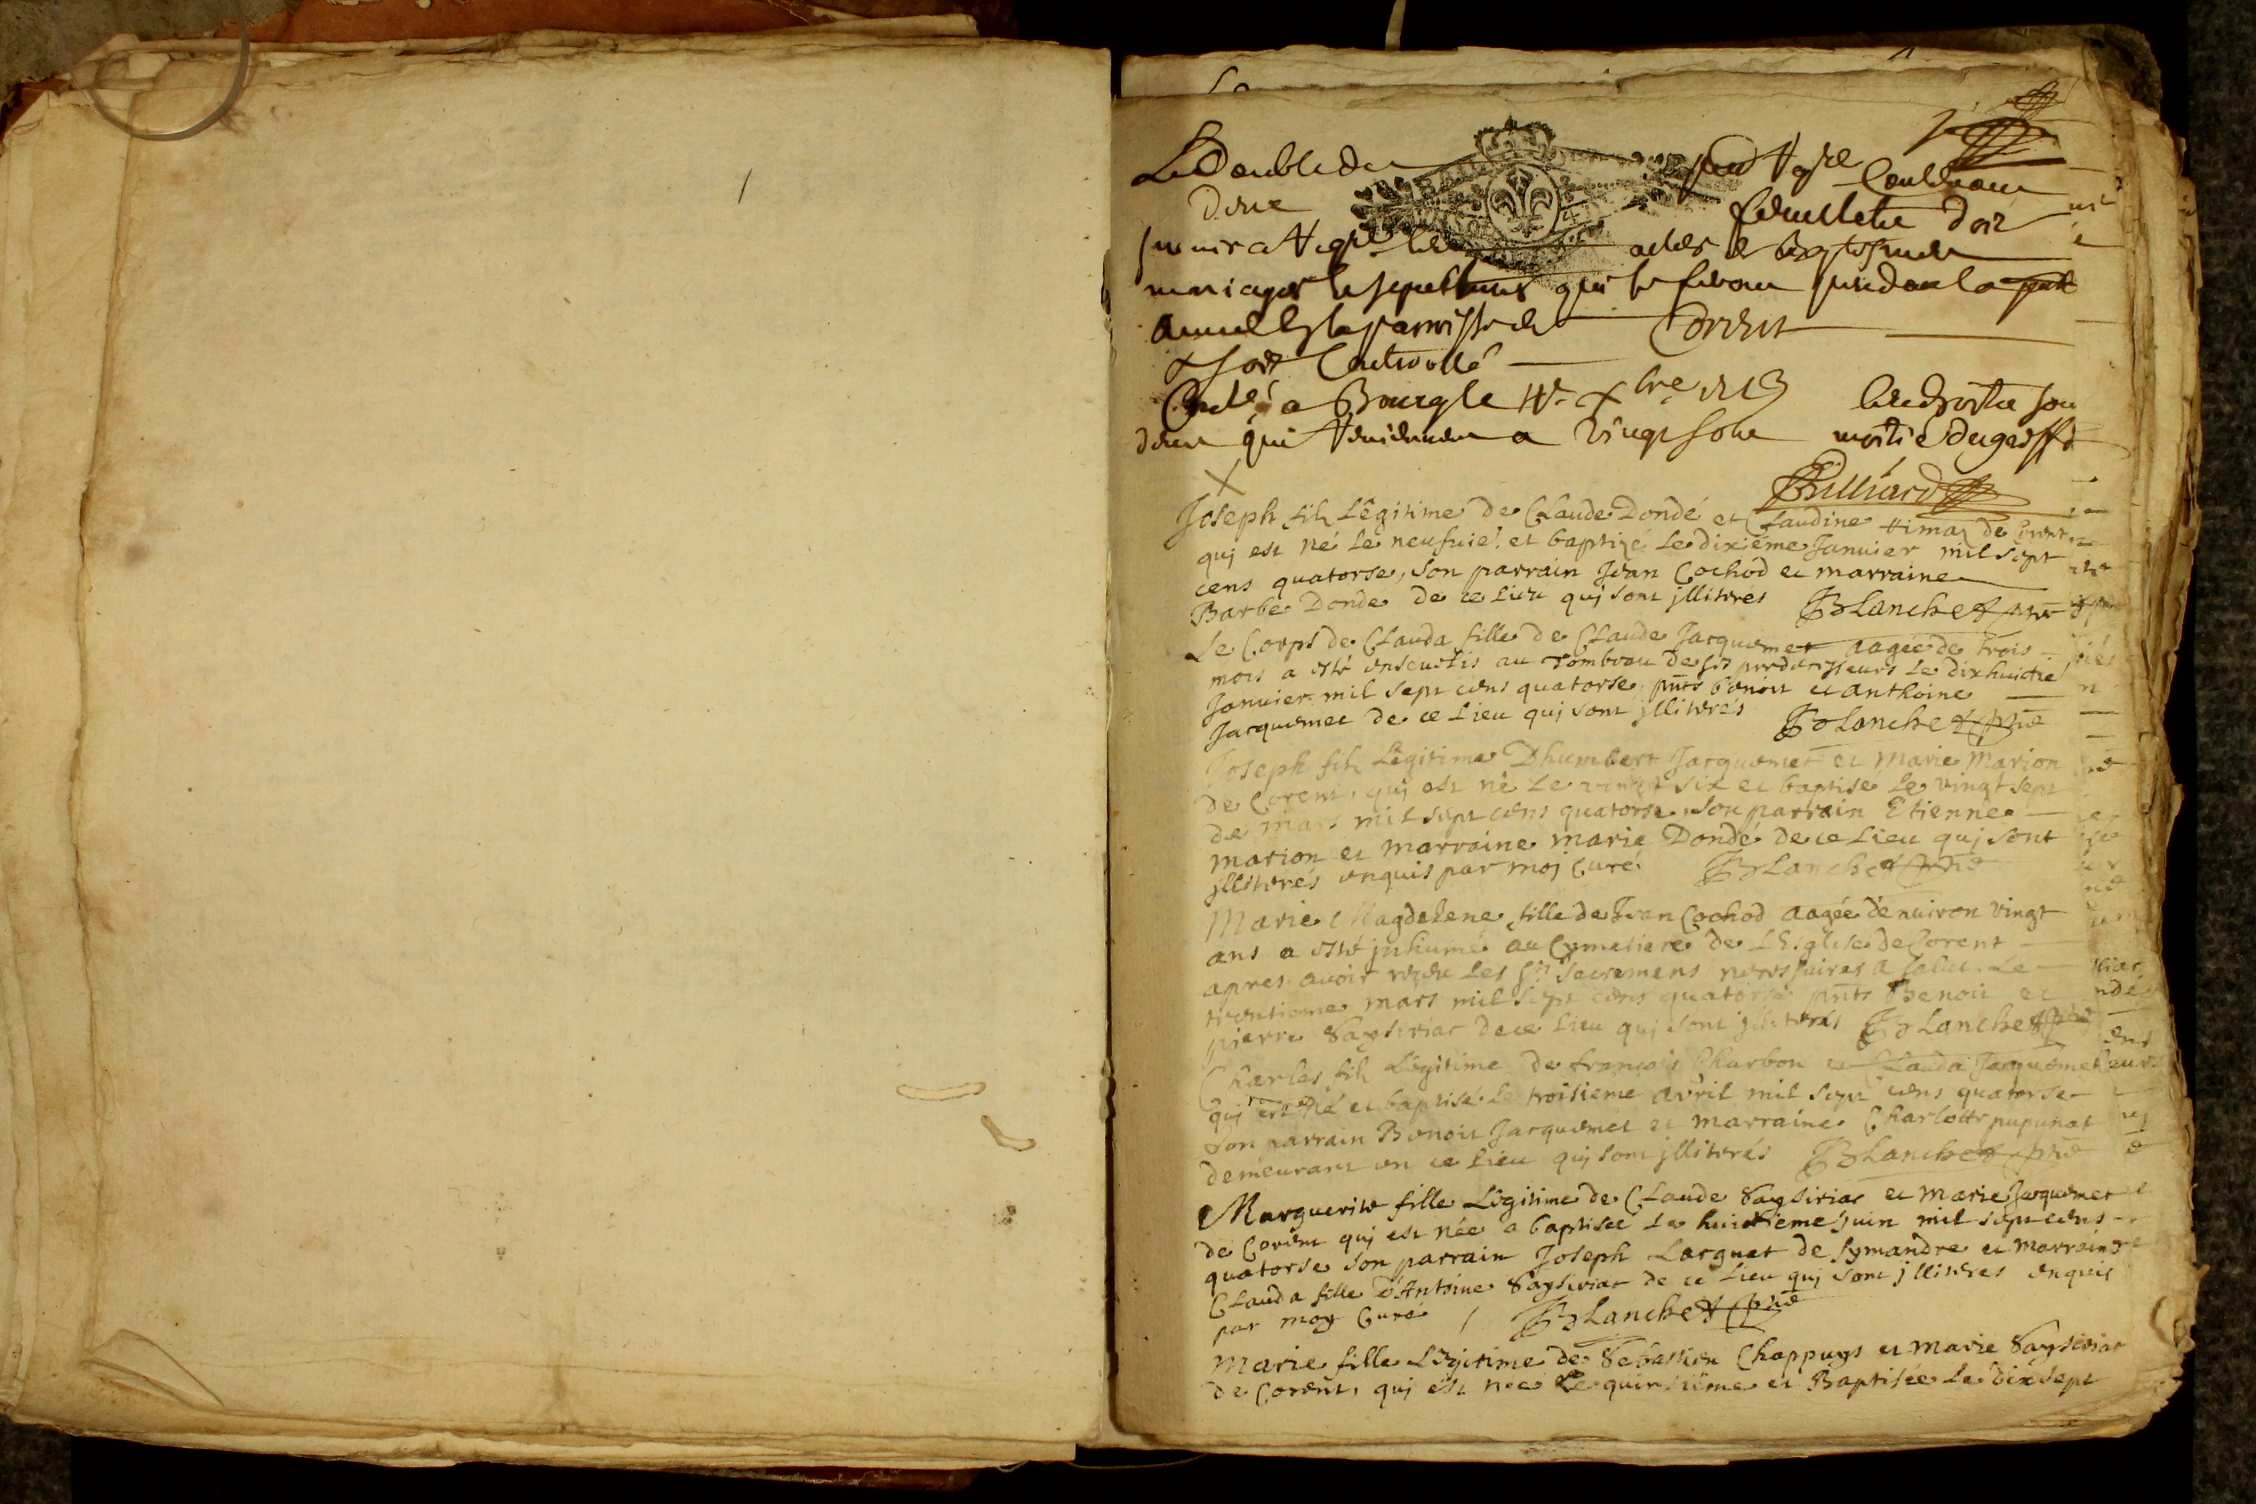 Le Double de
deux feuillets doit
servir a Regre actes de Baptesmes
mariages et sepultures qui se feront pendant la
annee la parroisse de Corent
Controllé
a Bourg le Xbre 1713
deux qui reviennent a vingt sous moitié du greffe
Billiard
Joseph fils Légitime de Claude Dondé et Claudine de Corent
quj est né le neufuie. et baptizé le dixiéme Januier mil sept
cens quatorse, son parrain Jean Cochod et marraine
Barbe Donde de ce Lieu quj sont jlliterés Blanchet
Le Corps de Clauda fille de Claude Jacquemet aagée de trois
mois a esté enseuelis au Tombeau de ses predecesseurs le dixhuictie
Januier mil sept cens quatorse, pnts benoit et anthoine
Jacquemet de ce Lieu quj sont jlliterés Blanchet
Joseph fils Légitime Dhumbert Jacquemet et Marie Marion
de Corent, quj est né le vingt six et baptise le vingt sept
de mars mil sept cens quatorse, son parrain Etienne
marion et marraine marie Dondé de ce Lieu quj sont
jlliterés enquis par moj Curé Blanchet
Marie Magdelene, fille de Jean Cochod aagée denuiron vingt
ans a esté jnhumé au Cymetiere de LEglise de Corent
apres avoir reçeu les Sts Sacremens necessaires a salut. Le
trentieme mars mil sept cens quatorse pnts Benoit et
pierre Saysiriac de ce Lieu quj sont jlliterés Blanchet
Charles fils Légitime de françois Charbon et Clauda Jacquemet
quj est Né et baptisé le troisieme avril mil sept cens quatorse
son parrain Benoit Jacquemet et marraine Charlotte pupunat
demeurant en ce Lieu quj sont jlliterés Blanchet
Marguerite fille Légitime de Claude Saysiriac et Marie Jacquemet
de Corent quj est née a baptisée le huictieme juin mil sept cens
quatorse son parrain Joseph Lacquet de symandre et marraine
Clauda fille d'Antoine Saysiriac de ce Lieu quj sont jlliteres enquis
par moy Curé / Blanchet
Marie fille Légitime de Sebastien Chappuys et Marie Saysiriac
de Corent, quj est née Le quinsiéme et Baptisée le dix sept